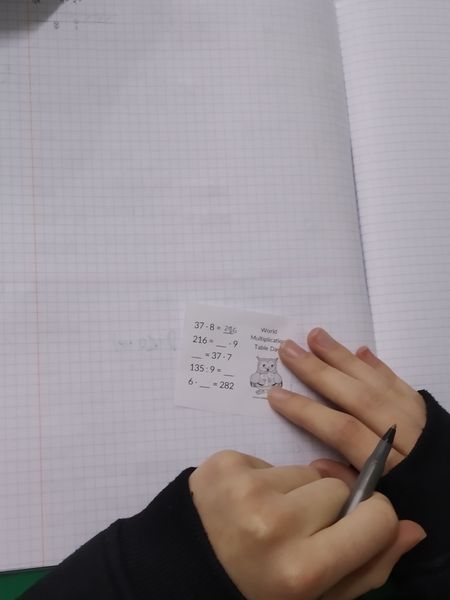 37 · 8 = 296
216 = __ · 9
__ = 37 · 7
135 : 9 = __
6 · __ = 282
World
Multiplication
Table Day